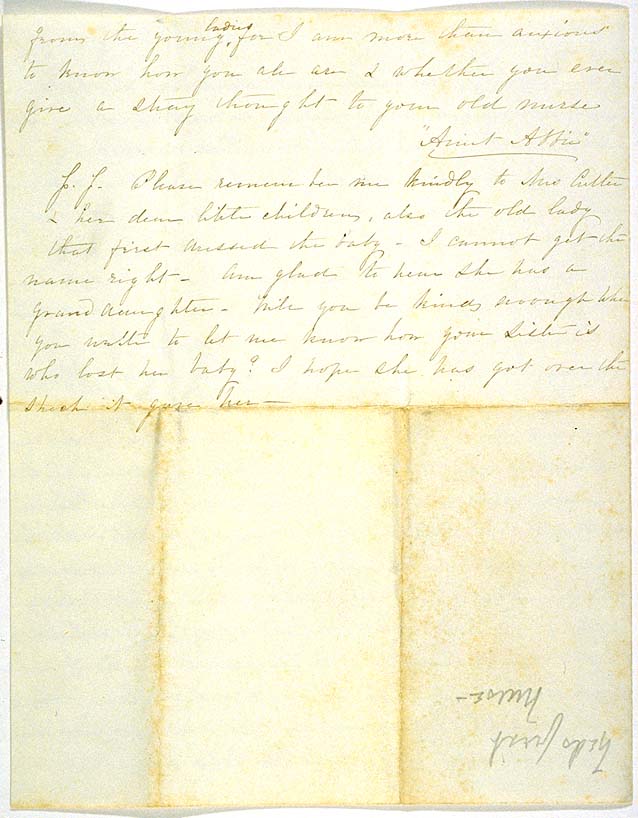 from the young ladies, for I am more than anxious
to know how you all are & whether you ever
give a stray thought to your old nurse
"Aunt Abbie"
P.S. Please remember me kindly to Mrs Cutler
& her dear little children, also the old lady
that first dressed the baby - I cannot get the
name right - Am glad to hear she has a
granddaughter - Will you be kind enough when
you write to let me know how your sister is
who lost her baby? I hope she has got over the
shock it gave her -
nurse -